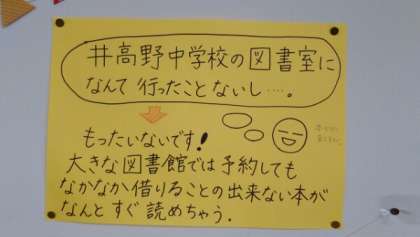 井高野中学校の図書室に
なんて 行ったことないし‥‥。
もったいないです!
大きな図書館では予約しても
なかなか借りることの出来ない本が
なんと すぐ 読めちゃう.